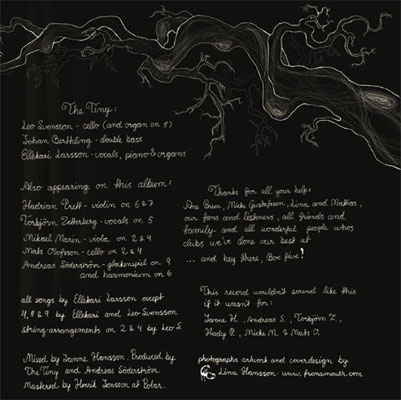 The Tiny:
Leo Svensson - cello (and organ on 8)
Johan Berthling - double bass
Ellekari Larsson - vocals, piano & organs
Also appearing on this album:
Hadrian Prett - violin on 5 & 7
Torbjörn Zetterberg - vocals on 5
Mikael Marin - viola on 2 & 4
Mats Olofsson - cello on 2 & 4
Andreas Söderström - glockenspiel on 9
and harmonium on 6
all songs by Ellekari Larsson except
4, 8 & 9 by Ellekari and Leo Svensson
string-arrangements on 2 & 4 by Leo S.
Mixed by Janne Hansson. Produced by
The Tiny and Andreas Söderström.
Mastered by Henrik Jonsson at Polar.
Thanks for all your help:
Ane Brun, Micke Gustafsson, Lina and Mattias,
our fans and listeners, all friends and
family and all wonderful people whos
clubs we've done our best at
... and hey there, Box five!
This record wouldn't sound like this
if it wasn't for:
Janne H., Andreas S., Torbjörn Z.,
Hady P., Micke M. & Mats O.
photographs artwork and coverdesign by
Lina Hansson - www.fromamouth.com